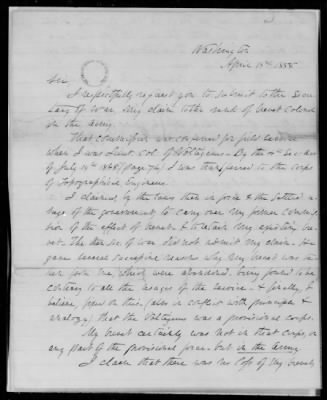 Washington
April 13th 1855
Sir
I respectfully request you to submit to the Secre-
tary of War, my claim to the rank of brevet Colonel
in the army.
That commission was conferred for field service
when I was Lieut Col of Voltigeurs. By the 4th Sec. Act
of July 19th 1848 (page 74) I was transferred to the corps
of Topographical Engineers.
I claimed, by the laws then in force & the settled u-
sage of the government, to carry over my former commis-
sion of the effect of brevet, & to retain my existing bre-
vet. The then Sec. of War did not admit my claim. He
gave several successive reasons why my brevet was not
in force, which were abandoned, being found to be
contrary to all the usages of the service & finally, I
believe, fixed on this, (also in conflict with principle &
analogy) that the Voltigeurs was a provisional corps.
My brevet certainly was not in that corps, or
any part of the provisional force but in the army.
I claim that there was no loss of my brevet